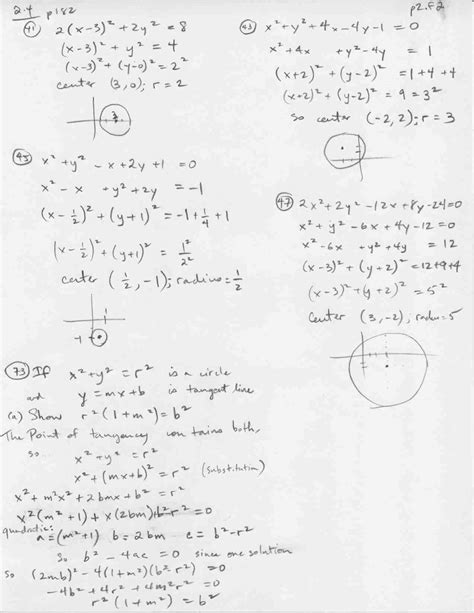 2.4 p182
p2.f2
(41) 2(x-3)² + 2y² = 8
(x-3)² + y² = 4
(x-3)² + (y-0)² = 2²
center (3,0); r = 2
3
(43) x² + y² + 4x - 4y - 1 = 0
x² + 4x + y² - 4y = 1
(x+2)² + (y-2)² = 1+4+4
(x+2)² + (y-2)² = 9 = 3²
so center (-2,2); r = 3
(45) x² + y² - x + 2y + 1 = 0
x² - x + y² + 2y = -1
(x - 1/2)² + (y+1)² = -1 + 1/4 + 1
(x - 1/2)² + (y+1)² = 1²/2²
center (1/2, -1); radius = 1/2
-1
(47) 2x² + 2y² - 12x + 8y - 24 = 0
x² + y² - 6x + 4y - 12 = 0
x² - 6x + y² + 4y = 12
(x-3)² + (y+2)² = 12+9+4
(x-3)² + (y+2)² = 5²
center (3,-2), radius = 5
(73) If x² + y² = r² is a circle
and y = mx + b is tangent line
(a) Show r²(1+m²) = b²
The Point of tangency contains both,
so x² + y² = r²
x² + (mx+b)² = r² (substitution)
x² + m²x² + 2bmx + b² = r²
x²(m²+1) + x(2bm) + b² - r² = 0
quadratic: a = (m²+1) b = 2bm c = b² - r²
So b² - 4ac = 0 since one solution
so (2mb)² - 4(1+m²)(b² - r²) = 0
-4b² + 4r² + 4m²r² = 0
r²(1+m²) = b²